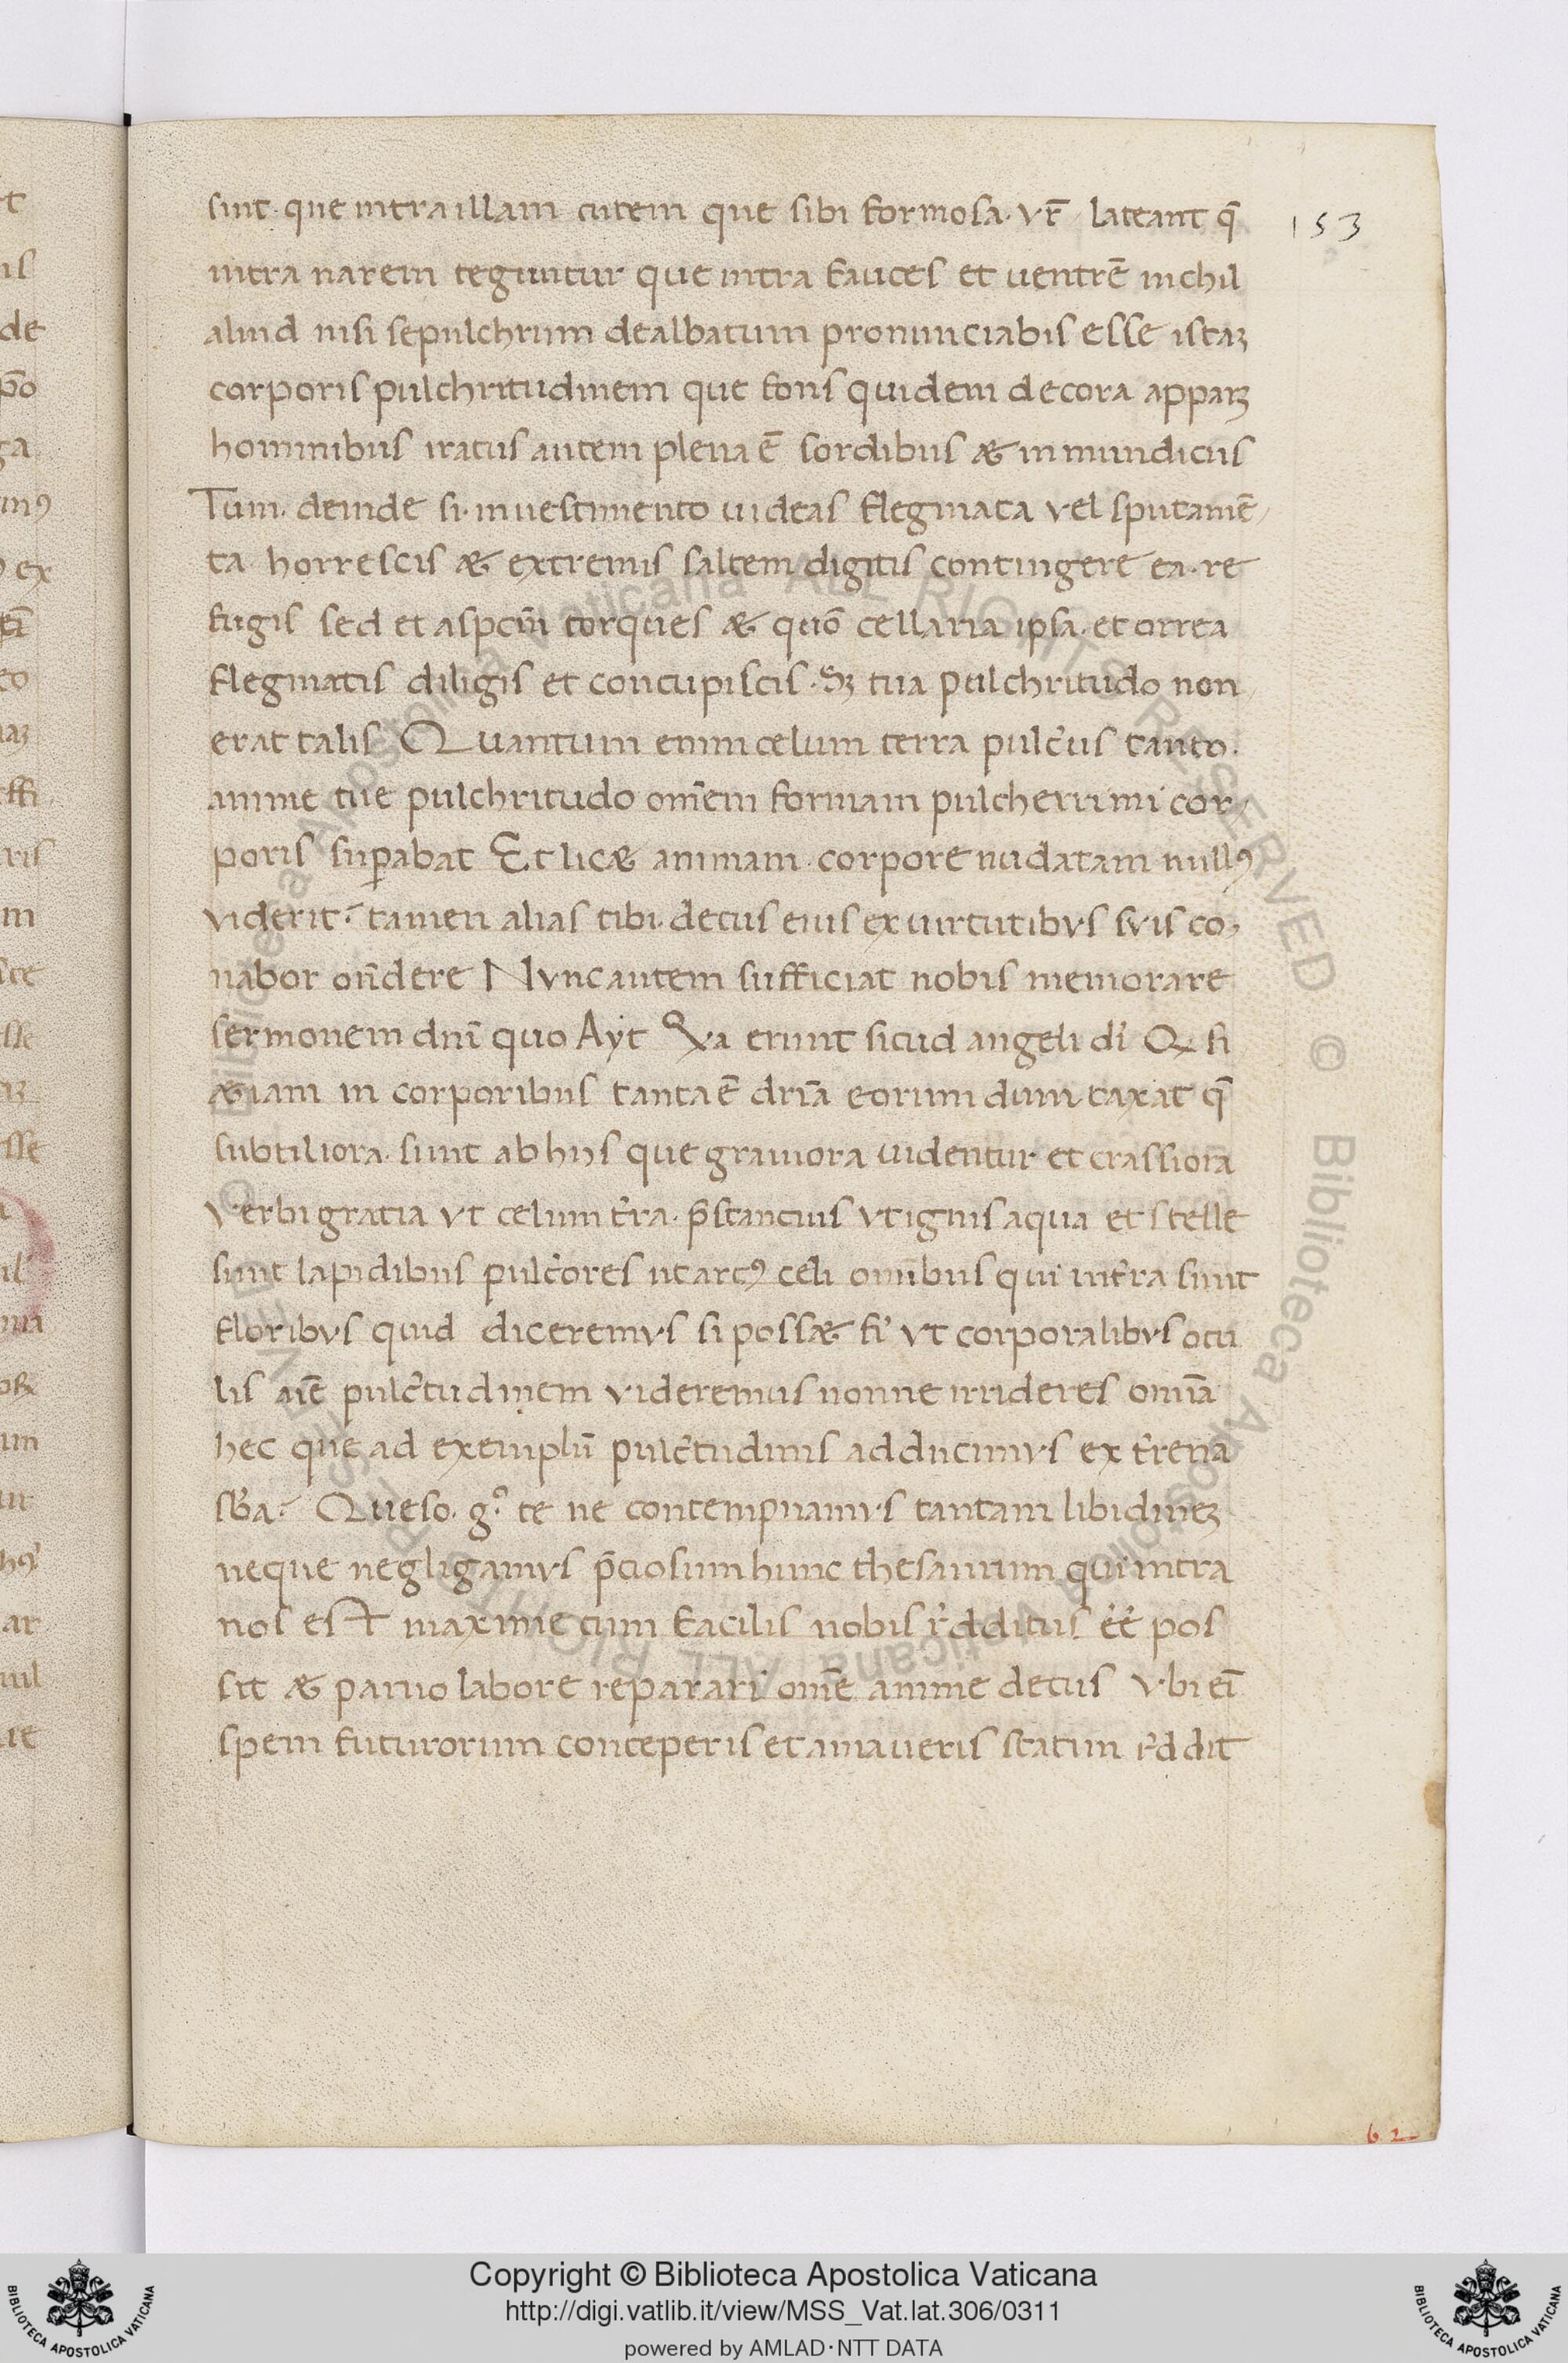 sunt. que intra illam cutem que sibi formosa. vr̄ lateant q̄
153
intra narem teguntur que intra fauces et uentrē nichil
aliud nisi sepulchrum dealbatum pronunciabis esse istaꝫ
corporis pulchritudinem que foris quidem decora apparꝫ
hominibus iratus autem plena ē sordibus & inmundiciis
Tum. deinde si. inuestimento uideas flegmata vel sputamē
ta horrescis & extremis saltem digitis contingere ea. re
fugis sed et aspcm̄ torques & quō cellaria ipsa. et orrea
flegmatis diligis et concupiscis. Sꝫ tua pulchritudo non
erat talis Quantum enim celum terra pulc̄ius tanto.
anime tue pulchritudo om̄em formam pulcherrimi cor
poris sup̄abat Et lic& animam. corpore nudatam null9
viderit. tamen alias tibi. decus eius ex uirtutibvs svis co
nabor on̄dere Nvnc autem sufficiat nobis memorare
sermonem dn̄i quo Ayt Qa erunt sicud angeli di Q si
&iam in corporibus tanta ē dr̄ia eorum dumtaxat q̄
subtiliora. sunt ab hys que grauiora uidentur et crassiora
Verbi gratia vt celum t̄ra. p̄stancius vt ignis aqua et stelle
sunt lapidibus pulc̄ores ut arc9 celi omnibus qui in t̄ra sunt
floribvs quid diceremvs si poss& fi vt corporalibvs ocu
lis aīe pulc̄tudinem videremus nonne irrideres omīa
hec que ad exemplū pulc̄tudinis adducimvs ex t̄rena
sb̄a. Queso. g° te ne contempnamvs tantam libidineꝫ
neque negligamvs p̄ciosum hunc thesaurum qui intra
nos est maxime cum facilis nobis r̄dditus ēē pos
sit & paruo labore reparari om̄e anime decus Vbi eī
spem futurorum conceperis et amaueris statim r̄ddit
62
Copyright © Biblioteca Apostolica Vaticana
http://digi.vatlib.it/view/MSS_Vat.lat.306/0311
powered by AMLAD·NTT DATA
BIBLIOTECA APOSTOLICA VATICANA
BIBLIOTECA APOSTOLICA VATICANA